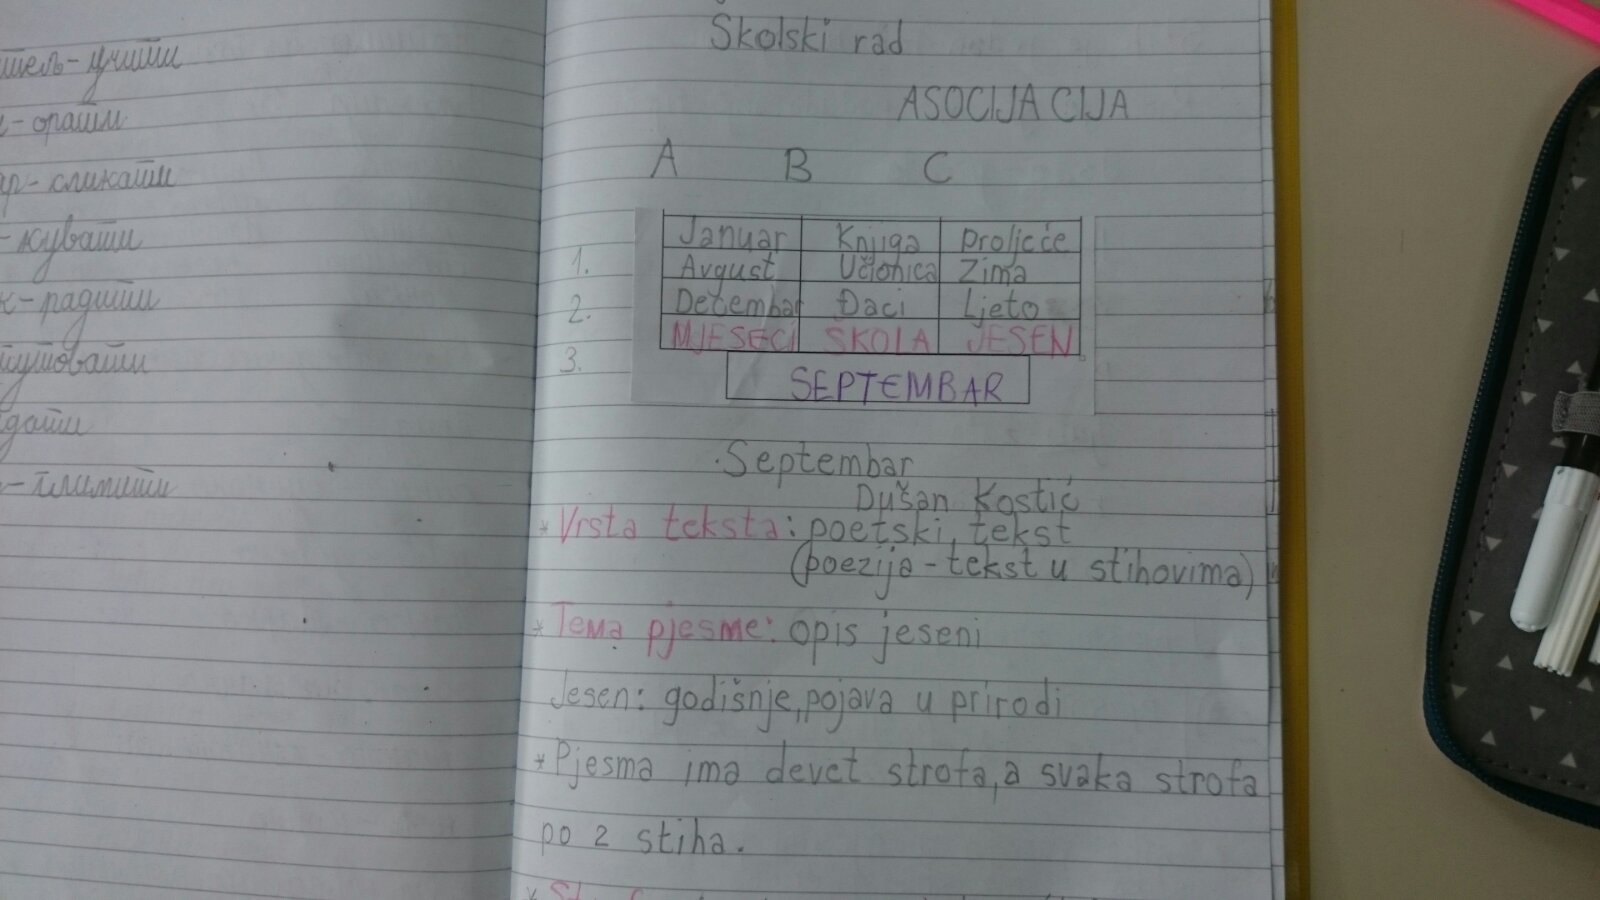 учити
орати
сликати
кувати
радити
Školski rad
ASOCIJACIJA
A B C
Januar Knjiga Proljeće
1. Avgust Učionica Zima
2. Decembar Đaci Ljeto
MJESECI ŠKOLA JESEN
3.
SEPTEMBAR
Septembar
Dušan Kostić
* Vrsta teksta: poetski, tekst
(poezija - tekst u stihovima)
* Tema pjesme: opis jeseni
Jesen: godišnje, pojava u prirodi
* Pjesma ima devet strofa, a svaka strofa
po 2 stiha.